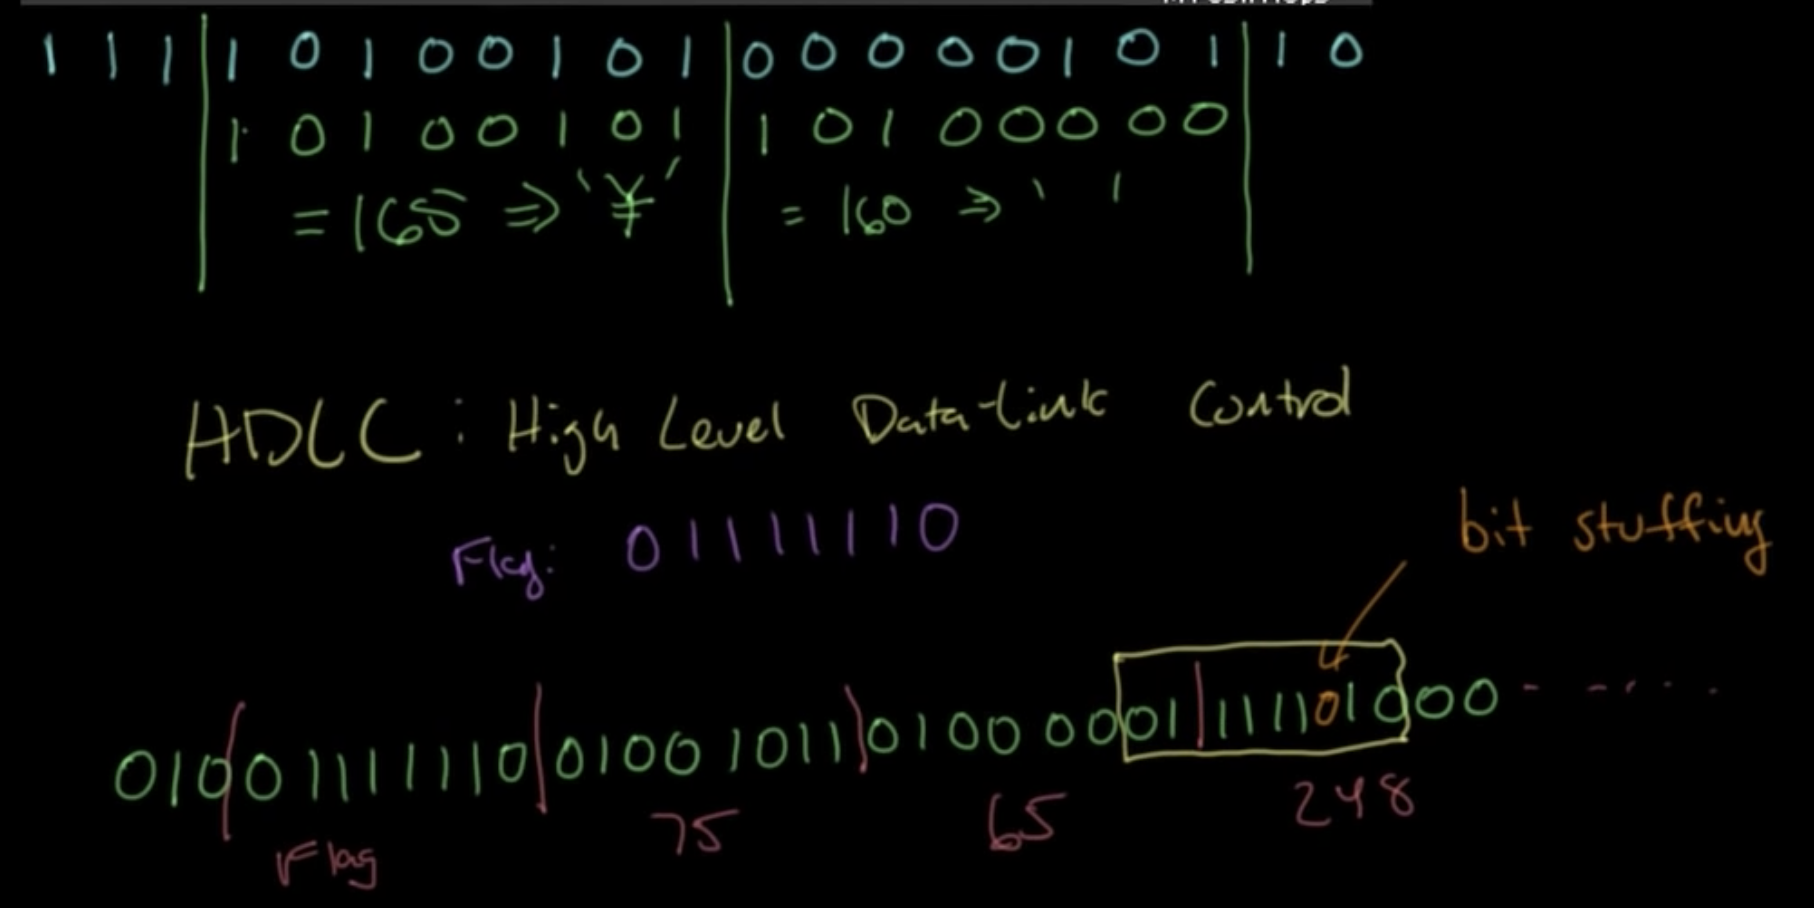 1 1 1 | 1 0 1 0 0 1 0 1 | 0 0 0 0 0 1 0 1 | 1 0
1 0 1 0 0 1 0 1 | 1 0 1 0 0 0 0 0
= 165 ⇒ '¥' = 160 ⇒ ' '
HDLC : High Level Data-Link Control
Flag: 0 1 1 1 1 1 1 0
bit stuffing
010|01111110|01001011|01000001|111101000 - - - . .
Flag 75 65 248